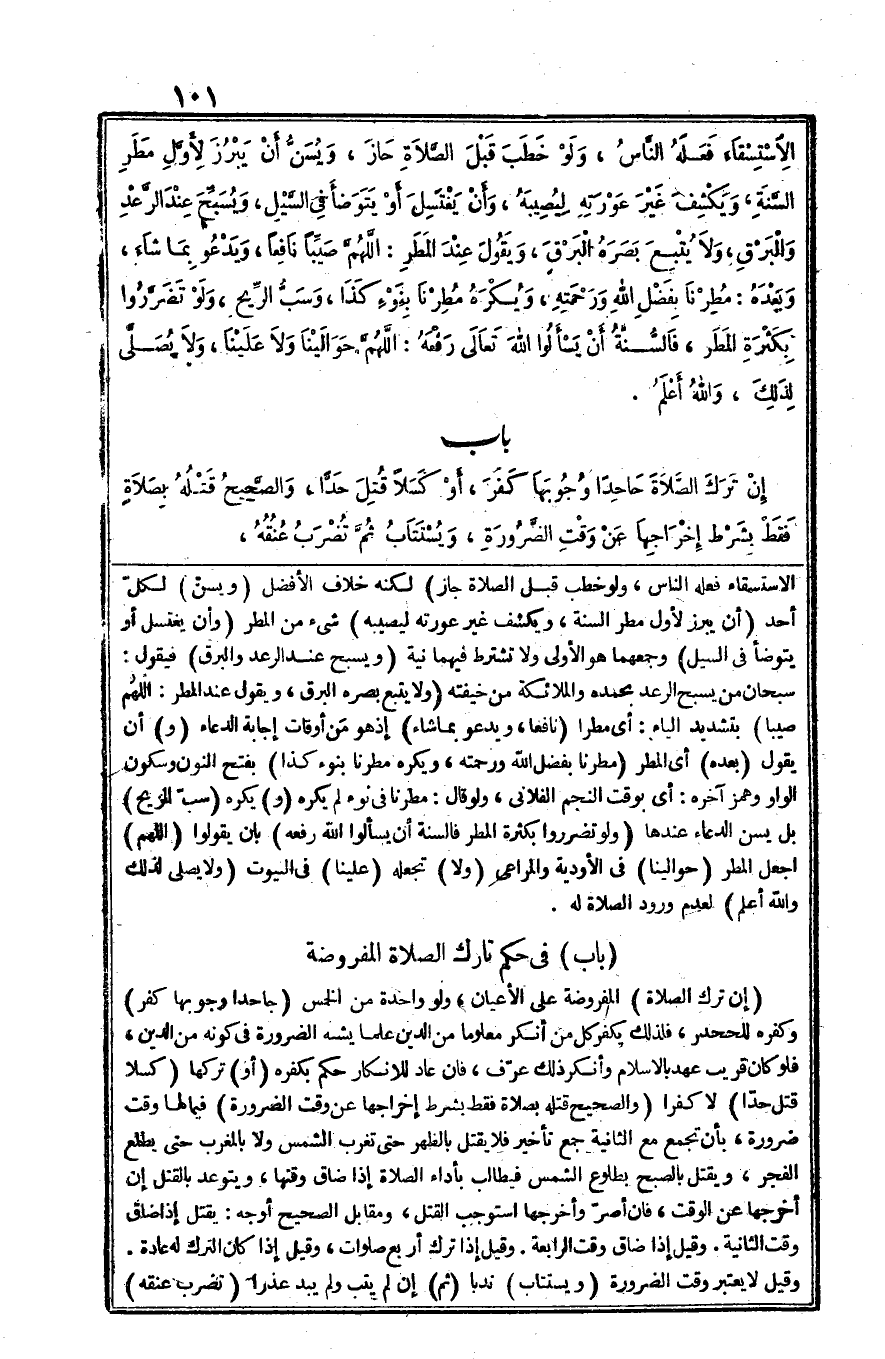 ١٠١
الِاسْتِسْقَاءِ فَعَلَهُ النَّاسُ ، وَلَوْ خَطَبَ قَبْلَ الصَّلَاةِ جَازَ ، وَيُسَنُّ أَنْ يَبْرُزَ لِأَوَّلِ مَطَرِ
السَّنَةِ ، وَيَكْشِفَ غَيْرَ عَوْرَتِهِ لِيُصِيبَهُ ، وَأَنْ يَغْتَسِلَ أَوْ يَتَوَضَّأَ فِي السَّيْلِ ، وَيُسَبِّحَ عِنْدَ الرَّعْدِ
وَالْبَرْقِ ، وَلَا يُتْبِعَ بَصَرَهُ الْبَرْقَ ، وَيَقُولَ عِنْدَ المَطَرِ : اللَّهُمَّ صَيِّبًا نَافِعًا ، وَيَدْعُوَ بِمَا شَاءَ ،
وَبَعْدَهُ : مُطِرْنَا بِفَضْلِ اللهِ وَرَحْمَتِهِ ، وَيُكْرَهُ مُطِرْنَا بِنَوْءِ كَذَا ، وَسَبُّ الرِّيحِ ، وَلَوْ تَضَرَّرُوا
بِكَثْرَةِ المَطَرِ ، فَالسُّنَّةُ أَنْ يَسْأَلُوا اللهَ تَعَالَى رَفْعَهُ : اللَّهُمَّ حَوَالَيْنَا وَلَا عَلَيْنَا ، وَلَا يُصَلَّى
لِذَلِكَ ، وَاللهُ أَعْلَمُ .
باب
إِنْ تَرَكَ الصَّلَاةَ جَاحِدًا وُجُوبَهَا كَفَرَ ، أَوْ كَسَلًا قُتِلَ حَدًّا ، وَالصَّحِيحُ قَتْلُهُ بِصَلَاةٍ
فَقَطْ بِشَرْطِ إِخْرَاجِهَا عَنْ وَقْتِ الضَّرُورَةِ ، وَيُسْتَتَابُ ثُمَّ تُضْرَبُ عُنُقُهُ ،
الاستسقاء فعله الناس ، ولو خطب قبل الصلاة جاز) لكنه خلاف الأفضل (ويسنّ) لكلّ
أحد (أن يبرز لأول مطر السنة ، ويكشف غير عورته ليصيبه) شيء من المطر (وأن يغتسل أو
يتوضأ فى السيل) وجمعهما هو الأولى ولا تشترط فيهما نية (ويسبح عند الرعد والبرق) فيقول :
سبحان من يسبح الرعد بحمده والملائكة من خيفته (ولا يتبع بصره البرق ، ويقول عند المطر : اللّهمّ
صيبا) بتشديد الياء : أى مطرا (نافعا ، ويدعو بما شاء) إذ هو من أوقات إجابة الدعاء (و) أن
يقول (بعده) أى المطر (مطرنا بفضل الله ورحمته ، ويكره مطرنا بنوء كذا) بفتح النون وسكون
الواو وهمز آخره : أى بوقت النجم الفلانى ، ولو قال : مطرنا فى نوء لم يكره (و) يكره (سبّ الريح)
بل يسن الدعاء عندها (ولو تضرروا بكثرة المطر فالسنة أن يسألوا الله رفعه) بان يقولوا (اللهم)
اجعل المطر (حوالينا) فى الأودية والمراعى (ولا) تجعله (علينا) فى البيوت (ولا يصلى لذلك
والله أعلم) لعدم ورود الصلاة له .
(باب) فى حكم تارك الصلاة المفروضة
(إن ترك الصلاة) المفروضة على الأعيان ، ولو واحدة من الخمس (جاحدا وجوبها كفر)
وكفره للجحد ، فلذلك يكفر كل من أنكر معلوما من الدين علما يشبه الضرورة فى كونه من الدين ،
فلو كان قريب عهد بالاسلام وأنكر ذلك عرّف ، فان عاد للانكار حكم بكفره (أو) تركها (كسلا
قتل حدّا) لا كفرا (والصحيح قتله بصلاة فقط بشرط إخراجها عن وقت الضرورة) فيما لها وقت
ضرورة ، بأن تجمع مع الثانية جمع تأخير فلا يقتل بالظهر حتى تغرب الشمس ولا بالمغرب حتى يطلع
الفجر ، ويقتل بالصبح بطلوع الشمس فيطالب بأداء الصلاة إذا ضاق وقتها ، ويتوعد بالقتل إن
أخرجها عن الوقت ، فان أصرّ وأخرجها استوجب القتل ، ومقابل الصحيح أوجه : يقتل إذا ضاق
وقت الثانية . وقيل إذا ضاق وقت الرابعة . وقيل إذا ترك أربع صلوات ، وقيل إذا كان الترك له عادة .
وقيل لا يعتبر وقت الضرورة (ويستتاب) ندبا (ثم) إن لم يتب ولم يبد عذرا (تضرب عنقه)